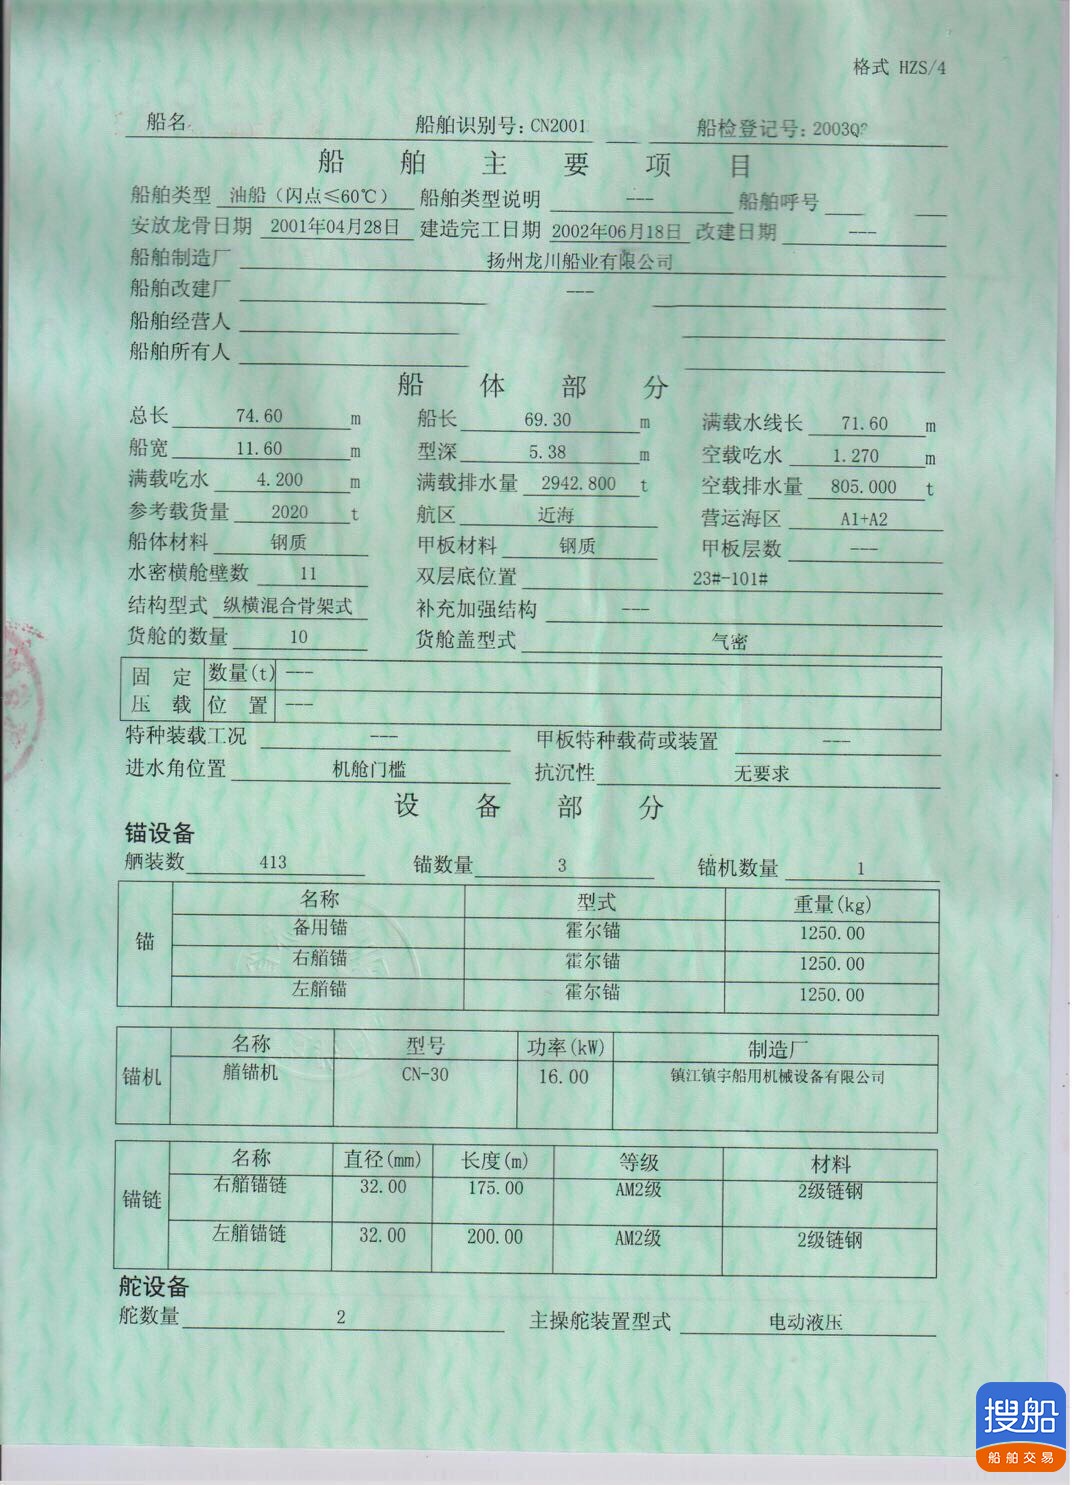 格式 HZS/4
船名 船舶识别号: CN2001 船检登记号: 2003Q
船舶主要项目
船舶类型 油船（闪点≤60℃） 船舶类型说明 --- 船舶呼号
安放龙骨日期 2001年04月28日 建造完工日期 2002年06月18日 改建日期 ---
船舶制造厂 扬州龙川船业有限公司
船舶改建厂 ---
船舶经营人
船舶所有人
船体部分
总长 74.60 m 船长 69.30 m 满载水线长 71.60 m
船宽 11.60 m 型深 5.38 m 空载吃水 1.270 m
满载吃水 4.200 m 满载排水量 2942.800 t 空载排水量 805.000 t
参考载货量 2020 t 航区 近海 营运海区 A1+A2
船体材料 钢质 甲板材料 钢质 甲板层数 ---
水密横舱壁数 11 双层底位置 23#-101#
结构型式 纵横混合骨架式 补充加强结构 ---
货舱的数量 10 货舱盖型式 气密
固定 数量(t) ---
压载 位置 ---
特种装载工况 --- 甲板特种载荷或装置 ---
进水角位置 机舱门槛 抗沉性 无要求
设备部分
锚设备
舾装数 413 锚数量 3 锚机数量 1
名称 型式 重量(kg)
备用锚 霍尔锚 1250.00
锚 右艏锚 霍尔锚 1250.00
左艏锚 霍尔锚 1250.00
名称 型号 功率(kW) 制造厂
锚机 艏锚机 CN-30 16.00 镇江镇宇船用机械设备有限公司
名称 直径(mm) 长度(m) 等级 材料
锚链 右艏锚链 32.00 175.00 AM2级 2级链钢
左艏锚链 32.00 200.00 AM2级 2级链钢
舵设备
舵数量 2 主操舵装置型式 电动液压
搜船
船舶交易